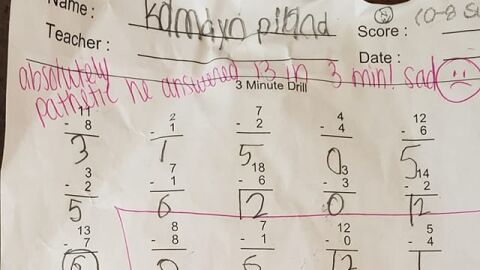 Name : Kamdyn piland Score : (0-8
Teacher : Date :
absolutely
pathetic he answered 13 in 3 min! sad
3 Minute Drill
11 2 7 4 12
- 8 - 1 - 2 - 4 - 6
3 1 5 0 5
3 7 18 3 14
- 2 - 1 - 6 - 3 - 2
5 6 12 0 12
13 8 7 12 5
- 7 - 8 - 1 - 0 - 4
6 0 6 12 1